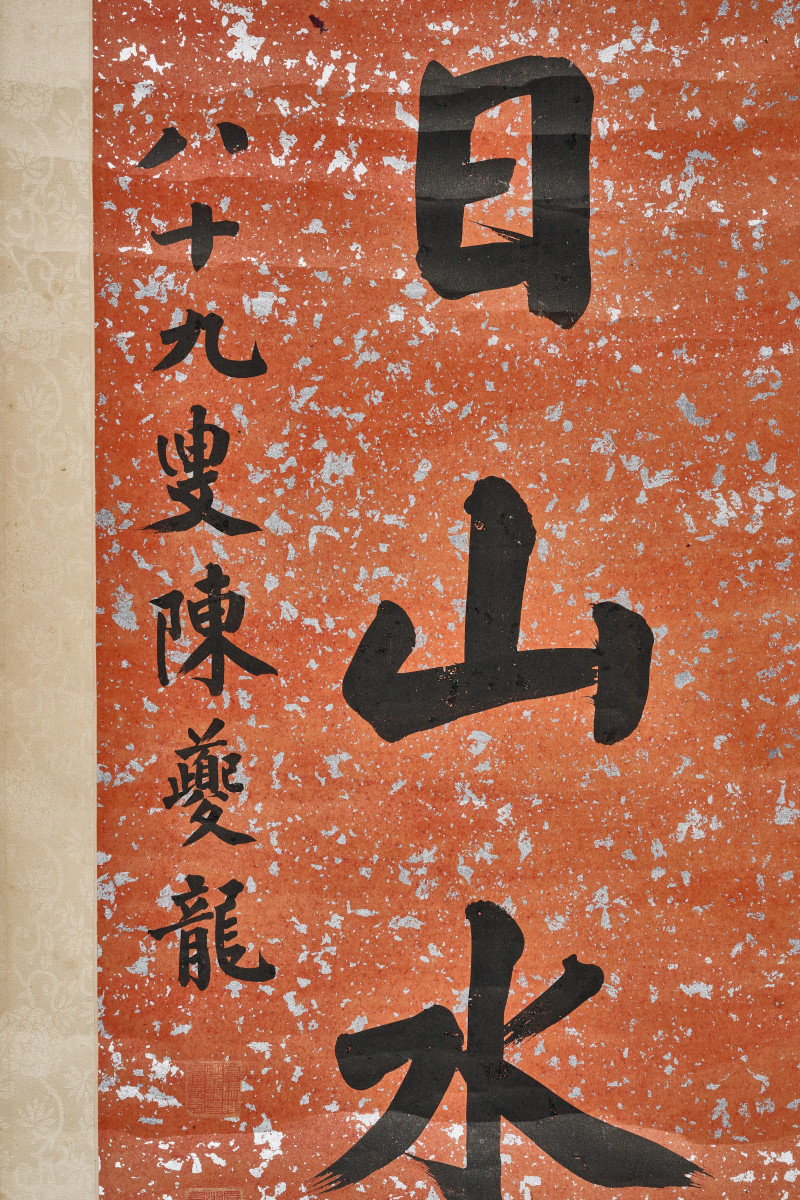 日山水
八十九叟陳夔龍